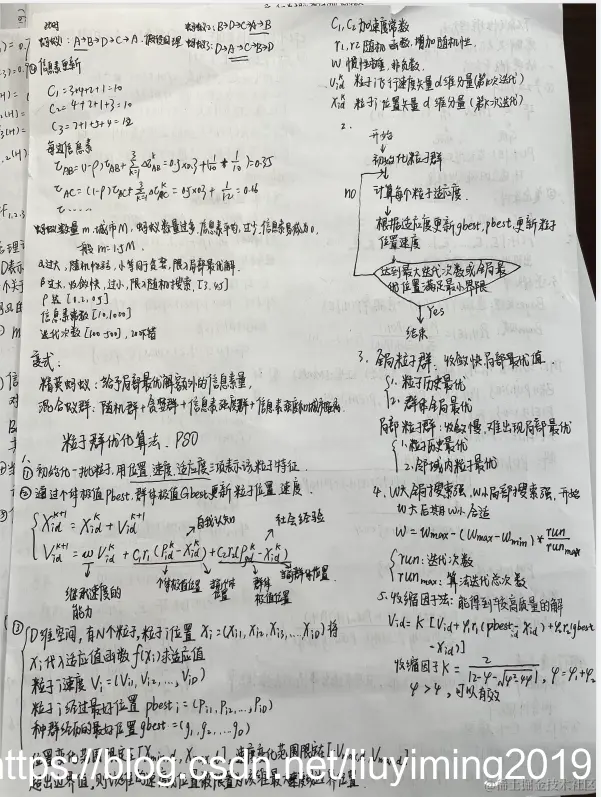 蚂蚁2: B→D→C→A→B
蚂蚁1: A→B→D→C→A. 蚂蚁3: D→A→C→B→D
②信息素更新
C₁=3+4+2+1=10
C₂=4+2+1+3=10
C₃=2+1+5+4=12
每边信息素
τAB=(1-ρ)τAB+∑ΔτᵏAB=0.5×0.3+(1/10+1/10)=0.35
τAC=(1-ρ)τAC+∑ΔτᵏAC=0.5×0.3+1/12=0.16
蚂蚁数量m,城市M,蚂蚁数量过多,信息素平均,过少,信息素易减为0.
一般m=1.5M.
α过大,随机性弱,小等同于贪婪,限入局部最优解.
β过大,收敛快,过小,限入随机搜索,[3,4.5]
ρ 取[0.2,0.5]
信息素常数[10,1000]
迭代次数[100-500],
变式:
精英蚂蚁:给予局部最优解额外的信息量,
混合蚁群:随机群+贪婪群+信息素
粒子群优化算法.PSO
①初始化一批粒子,用位置、速度、适应度三项表示该粒子特征.
②通过个体极值Pbest,群体极值Gbest更新粒子位置、速度.
③
自我认知 社会经验
Xidᵏ⁺¹=Xidᵏ+Vidᵏ⁺¹
Vidᵏ⁺¹=ωVidᵏ+C₁r₁(Pidᵏ-Xidᵏ)+C₂r₂(Pgdᵏ-Xidᵏ)
继承速度的能力 个体极值位置 当前位置 群体极值位置
D维空间,有N个粒子,粒子i位置 Xi=(Xi1,Xi2,Xi3,...XiD)将
Xi代入适应值函数f(Xi)求适应值
粒子i速度Vi=(Vi1,Vi2,...,ViD)
粒子i经过最好位置pbesti=(Pi1,Pi2,...,PiD)
种群经历的最好位置gbest=(g1,g2,...gD)
C₁,C₂加速度常数
r₁,r₂随机函数,增加随机性.
W惯性权重,非负数.
Vidᵏ粒子i飞行速度矢量d维分量(第K次迭代)
Xidᵏ粒子i位置矢量d维分量(第K次迭代)
2.
开始
初始化粒子群
no
计算每个粒子适应度.
根据适应度更新gbest,pbest,更新粒子
位置速度
达到最大迭代次数或全局最
优位置满足最小界限
Yes
结束
3.全局粒子群:收敛快局部最优值.
1.粒子历史最优
2.群体全局最优
局部粒子群:收敛慢,难出现局部最优
1.粒子历史最优
2.邻域内粒子最优
4.W大全局搜索强,W小局部搜索强,开始
W大后期W小合适
W=Wmax-(Wmax-Wmin)*run/runmax
run:迭代次数
runmax:算法迭代总次数
5.收缩因子法:能得到较高质量的解
Vid=K[Vid+φ₁r₁(pbestid-Xid)+φ₂r₂(gbest
-Xid)]
收缩因子K=2/|2-φ-√(φ²-4φ)|,φ=φ₁+φ₂
φ>4,可以有效
https://blog.csdn.net/liuyiming2019
@稀土掘金技术社区